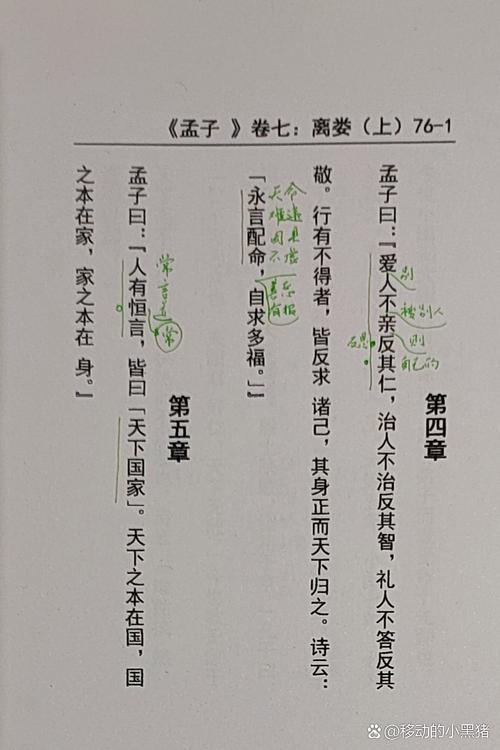 《孟子 》卷七：离娄（上）76-1
第四章
孟子曰：『爱人不亲反其仁，治人不治反其智，礼人不答反其
敬。行有不得者，皆反求 诸己，其身正而天下归之。诗云：
「永言配命，自求多福。」』
第五章
孟子曰：『人有恒言，皆曰「天下国家」。天下之本在国，国
之本在家，家之本在 身。』
别
被别人
则
自己的
反思
常
言道
常
善恶
有报
@移动的小黑猪